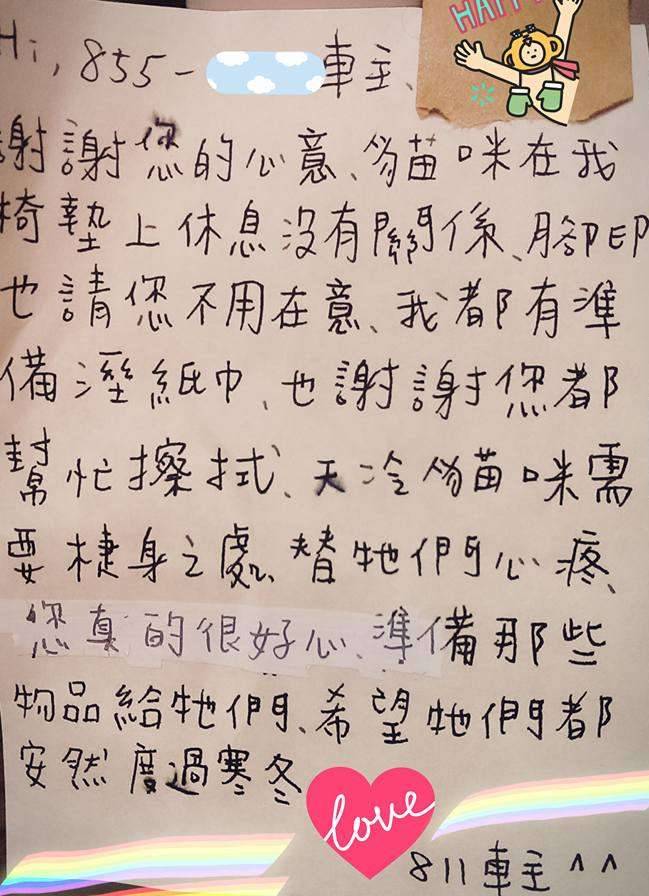 Hi, 855-車主、
謝謝您的心意、貓咪在我
椅墊上休息沒有關係、腳印
也請您不用在意、我都有準
備溼紙巾、也謝謝您都
幫忙擦拭、天冷貓咪需
要棲身之處、替牠們心疼、
您真的很好心、準備那些
物品給牠們、希望牠們都
安然度過寒冬
love
811車主^^